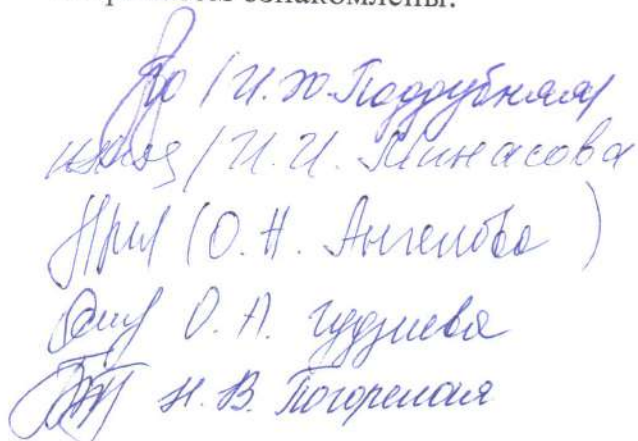 ознакомлены:
/ И. Ю. Поддубная/
/ И. И. Минасова
(О. Н. Ангелова )
О. А. Гудзиева
Н. В. Погорелая